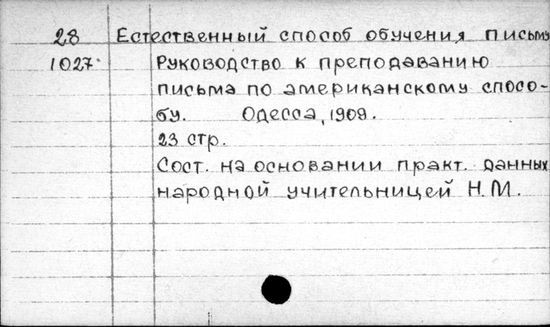 28 Естественный способ обучения письму
1027. Руководство к преподаванию
письма по американскому спосо-
бу. Одесса, 1909.
23 стр.
Сост. на основании практ. данных
народной учительницей Н.М.